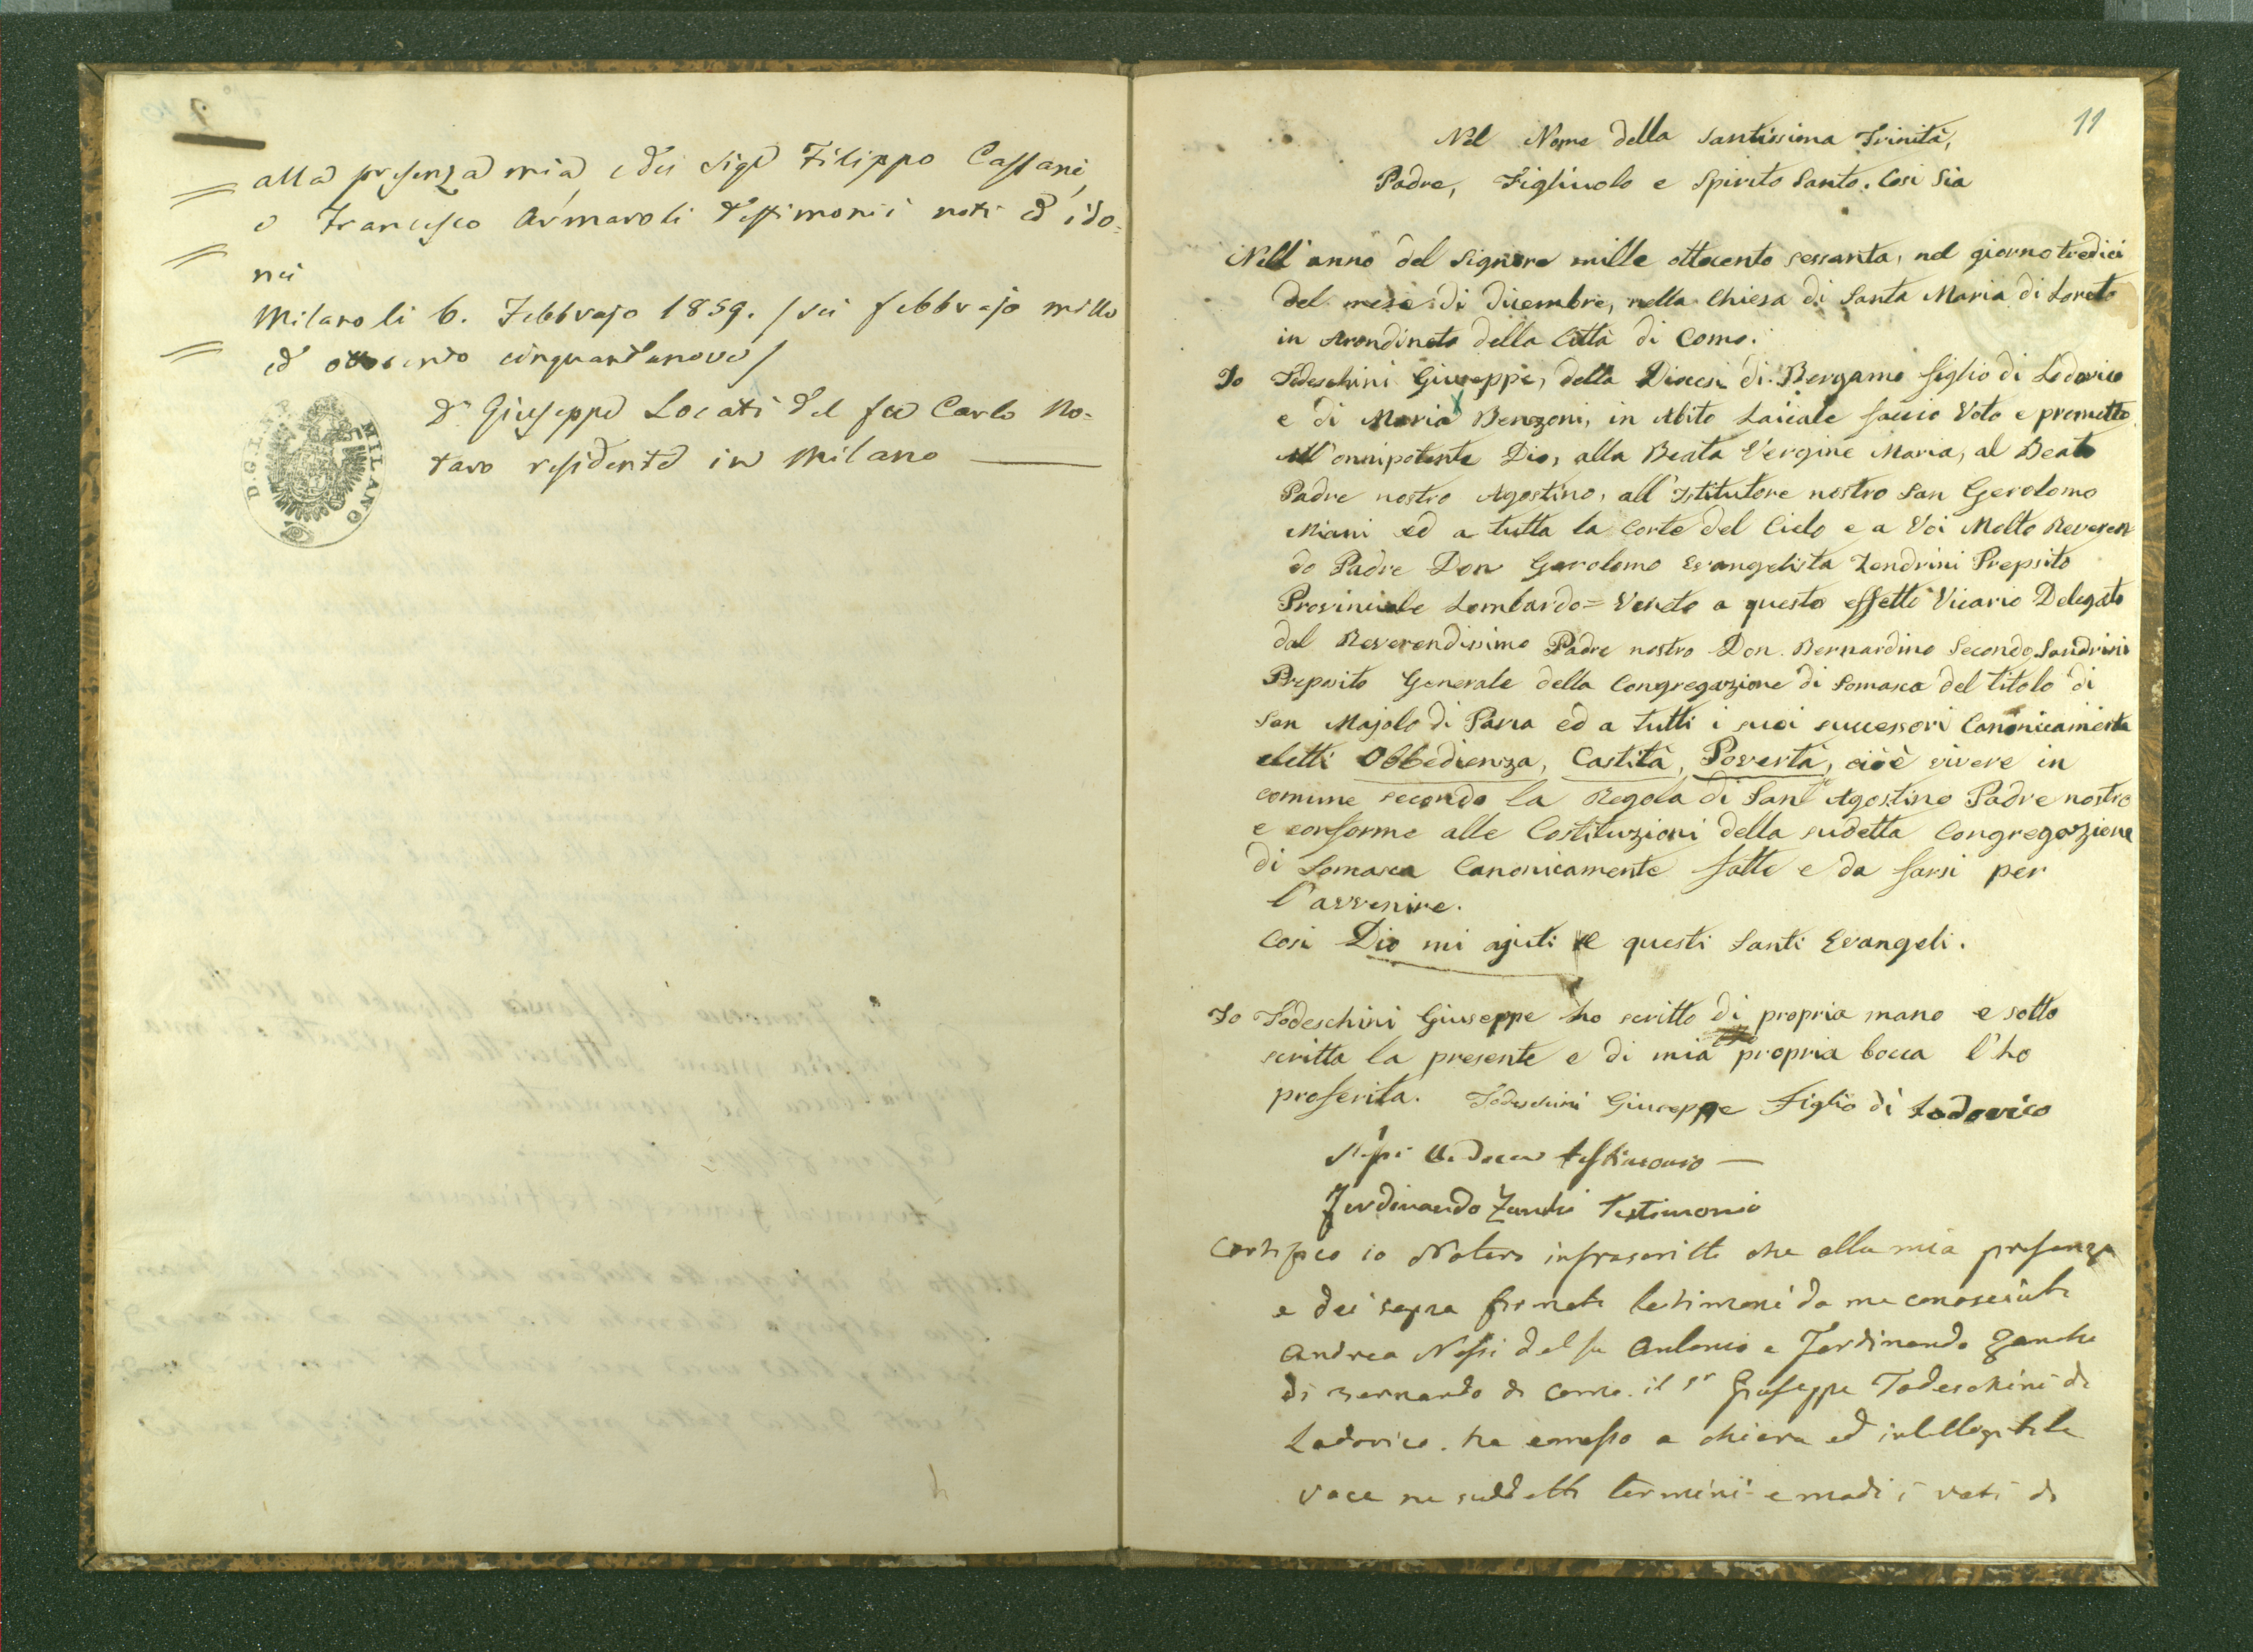 alla presenza mia, e dei Sigri Filippo Cassani,
e Francesco Armaroli Testimonii noti ed ido=
nei
Milano li 6. Febbrajo 1859. / sei febbrajo mille
ed ottocento cinquantanove /
Dr Giuseppe Locati del fu Carlo No=
taro residente in Milano
MILANO
11
Nel Nome della Santissima Trinità,
Padre, Figliuolo e Spirito Santo. Così Sia
Nell'anno del Signore mille ottocento sessanta, nel giorno tredici
del mese di dicembre, nella Chiesa di Santa Maria di Loreto
in Arondineto della Città di Como.
Io Todeschini Giuseppe, della Diocesi di Bergamo figlio di Lodovico
e di Maria Benzoni, in Abito Laicale faccio Voto e prometto
All'onnipotente Dio, alla Beata Vergine Maria, al Beato
Padre nostro Agostino, all'Istitutore nostro San Gerolomo
Miani ed a tutta la Corte del Cielo e a Voi Molto Reveren
do Padre Don Gerolomo Evangelista Zendrini Prepsito
Provinciale Lombardo=Veneto a questo effetto Vicario Delegato
dal Reverendissimo Padre nostro Don Bernardino Secondo Sandrini
Preposito Generale della Congregazione di Somasca del titolo di
San Majolo di Pavia ed a tutti i suoi successori Canonicamente
eletti Obbedienza, Castità, Povertà, cioè vivere in
comune secondo la Regola di Sant'Agostino Padre nostro
e conforme alle Costituzioni della sudetta Congregazione
di Somasca Canonicamente fatte e da farsi per
l'avvenire.
Così Dio mi ajuti e questi Santi Evangeli.
Io Todeschini Giuseppe ho scritto di propria mano e sotto
scritta la presente e di mia propria bocca l'ho
proferita. Todeschini Giuseppe Figlio di Lodovico
Nessi Andrea testimonio
Ferdinando Zanchi Testimonio
Certifico io Notaro infrascritto che alla mia presenza
e dei sopra firmati testimoni da me conosciuti
Andrea Nessi del fu Antonio e Ferdinando Zanchi
di Bernardo di Como il Sr Giuseppe Todeschini di
Lodovico ha emesso a chiara ed intelligibile
voce ne suddetti termini e modi i voti di